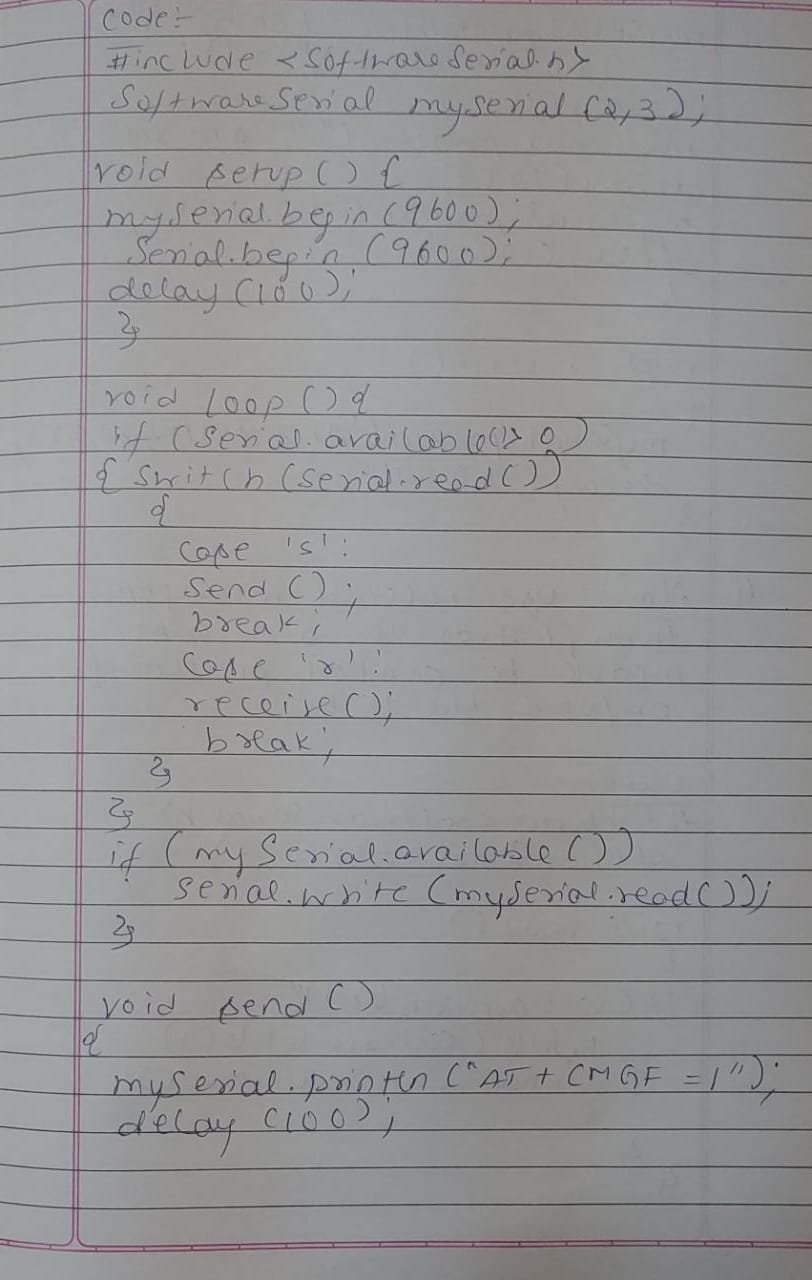 code:-
#include <SoftwareSerial.h>
SoftwareSerial myserial (2,3);
void setup() {
myserial.begin(9600);
Serial.begin (9600);
delay (100);
}
void loop () {
if (serial.available()> 0)
{ switch (serial.read())
{
case 's':
send ();
break;
case 'r':
receive();
break;
}
}
if (my Serial.available ())
serial.write (myserial.read());
}
void send ()
{
myserial.println ("AT + CMGF =1");
delay (100);